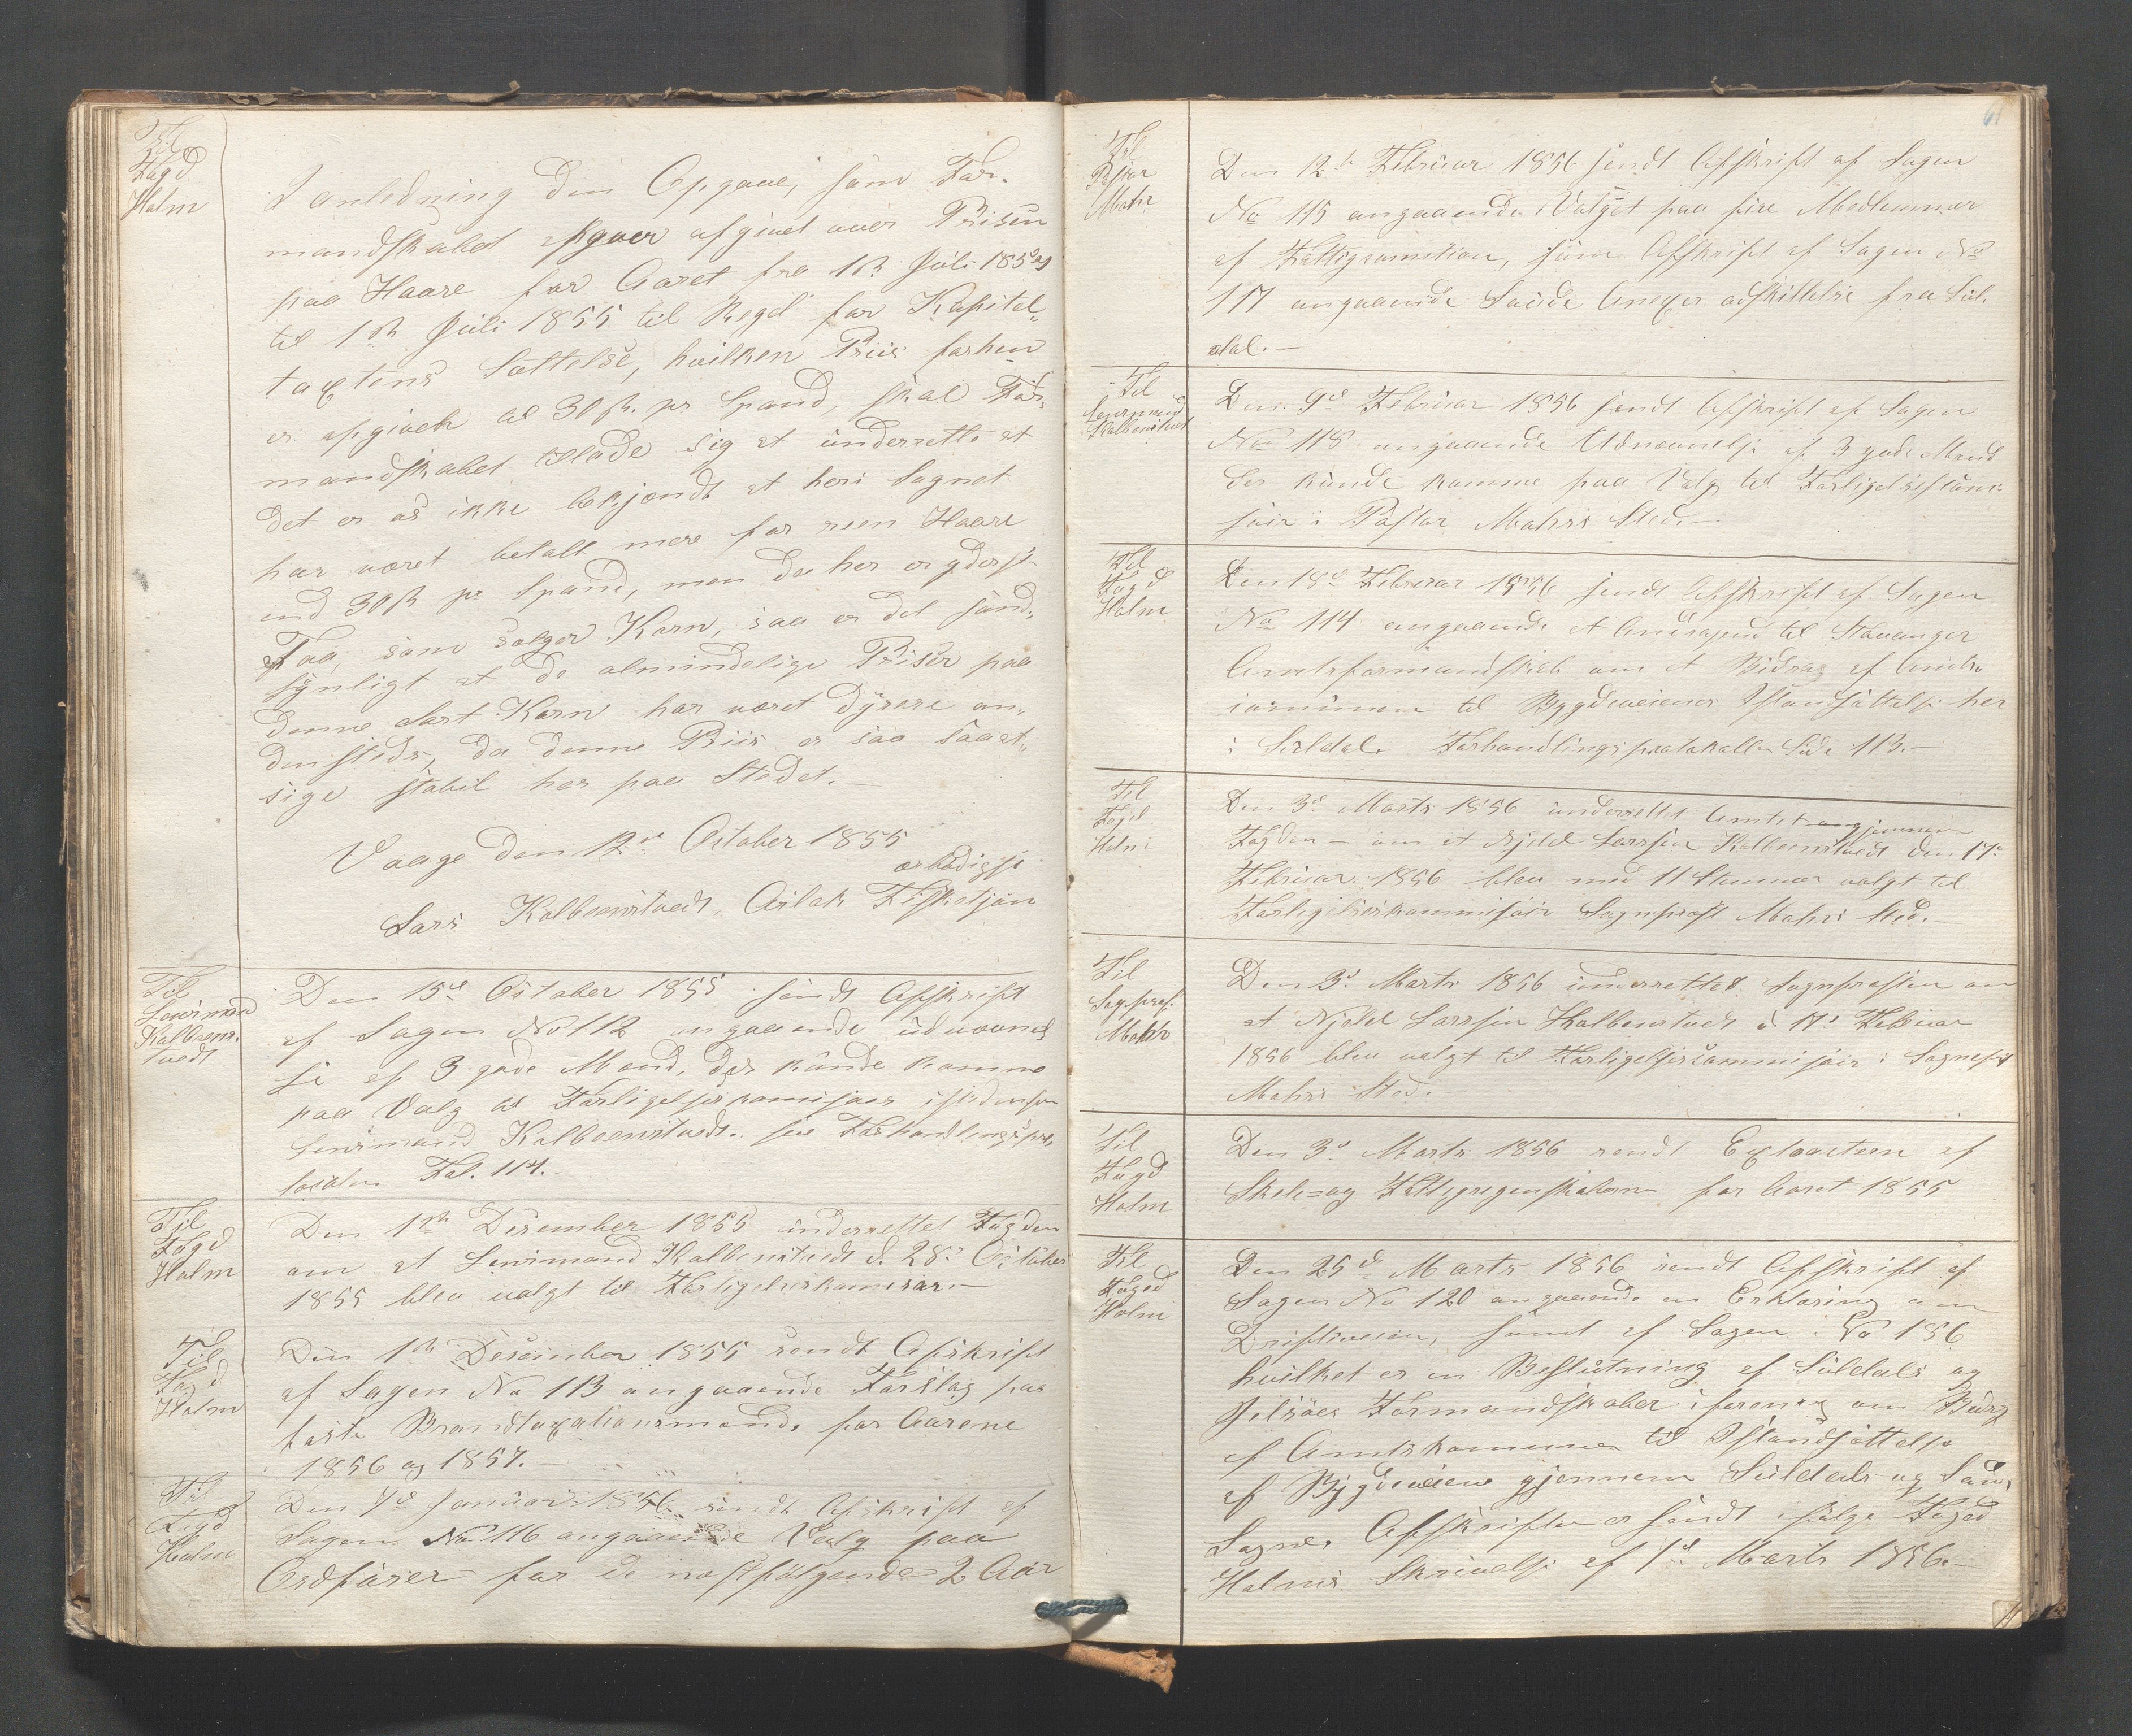 Til
Fogd
Holm
I anledning den Opgave, som For-
mandskabet opgaver afgivet over Prisen
paa Havre for Aaret fra 1ste Juli 1854
til 1ste Juli 1855 til Regel for Kapitel-
taxtens Sættelse, hvilken Priis forhen
er opgivet til 30 sk. pr Spand, skal For-
mandskabet tillade sig at underrette at
det er os ikke bekjendt at her i Sognet
har været betalt mere for reen Havre
end 30 sk pr Spand, men da her er yderst
Faa, som sælger Korn, saa er det sand-
synligt at de almindelige Priser paa
denne Sort Korn har været dyrere an-
denstids, da denne Priis er saa saaat-
sige stabil her paa Stedet.
Vaage den 12te October 1855
ærbødigst
Lars Kolbeenstvedt, Aslak Fisketjøn
Til
Lensmand
Kolbeens-
tvedt
Den 15de October 1855 sendt Afskrift
af Sagen No 112 angaaende udnævnel-
se af 3 gode Mænd, der kunde komme
paa Valg til Forligelseskomisær istedenfor
Lensmand Kolbeenstvedt. see Forhandlingspro-
tocolen Fol. 114.
Til
Fogd
Holm
Den 1ste Desember 1855 underrettet Fogden
om at Lensmand Kolbenstvedt d. 28de October
1855 blev valgt til Forligelseskomisær.-
Til
Fogd
Holm
Den 1ste Desember 1855 sendt Afskrift
af Sagen No 113 angaaende Forslag paa
faste Brandtaxationsmænd, for Aarene
1856 og 1857.-
Til
Fogd
Holm
Den 7de Januari 1856 sendt Afskrift af
Sagen No 116 angaaende Valg paa
Ordfører for de næstfølgende 2 Aar
Til
Pastor
Mohr
Den 12te Februar 1856 sendt Afskrift af Sagen
No 115 angaaende Valget paa fire Medlemmer
af Fattigcomition, samt Afskrift af Sagen No
117 angaaende Saude Anexes adskillelse fra Sul-
dal.-
Til
Lensmand
Kolbenstvedt
Den 9de Februar 1856 sendt Afskrift af Sagen
No 118 angaaende Udnævnelse af 3 gode Mænd
der kunde komme paa Valg til Forligelseskomi-
sær i Pastor Mohrs Sted.-
Til
Fogd
Holm
Den 18de Februar 1856 sendt Afskrift af Sagen
No 114 angaaende et Andragend til Stavanger
Amtsformandskab om et Bidrag af Amts-
comunen til Bygdeveienes Istandsættelse her
i Suldal. Forhandlingsprotokollen Side 113.-
Til
Fogd
Holm
Den 3de Marts 1856 underrettet Amtet gjennem
Fogden - om at Njeld Larssen Kolbeenstvedt den 17de
Februar 1856 blev med 11 Stemmer valgt til
Forligelseskommisær Sognprest Mohrs Sted.-
Til
Sognprest
Mohr
Den 3de Marts 1856 underrettet Sognprosten om
at Njeld Larssen Kolbenstvedt d 17de Februar
1856 blev valgt til Forligelsescommisær i Sognepst
Mohrs Sted.-
Til
Fogd
Holm
Den 3de Marts 1856 sendt Extracten af
Skole- og Fattigregenskaberne for Aaret 1855
Til
Foged
Holm
Den 25de Marts 1856 sendt Afskrift af
Sagen No 120 angaaende en Erklæring om
Driftiveien, samt af Sagen i No 156
hvilket er en Beslutning af Suldals og
Jelsøes Formandskaber i forening om Bidrag
af Amtskomunen til Istandsættelse
af Bygdeveiene gjennem Suldals og Sand
Sogne. Afskrifter er sendt ifølge Foged
Holms Skrivelse af 1ste Marts 1856.-